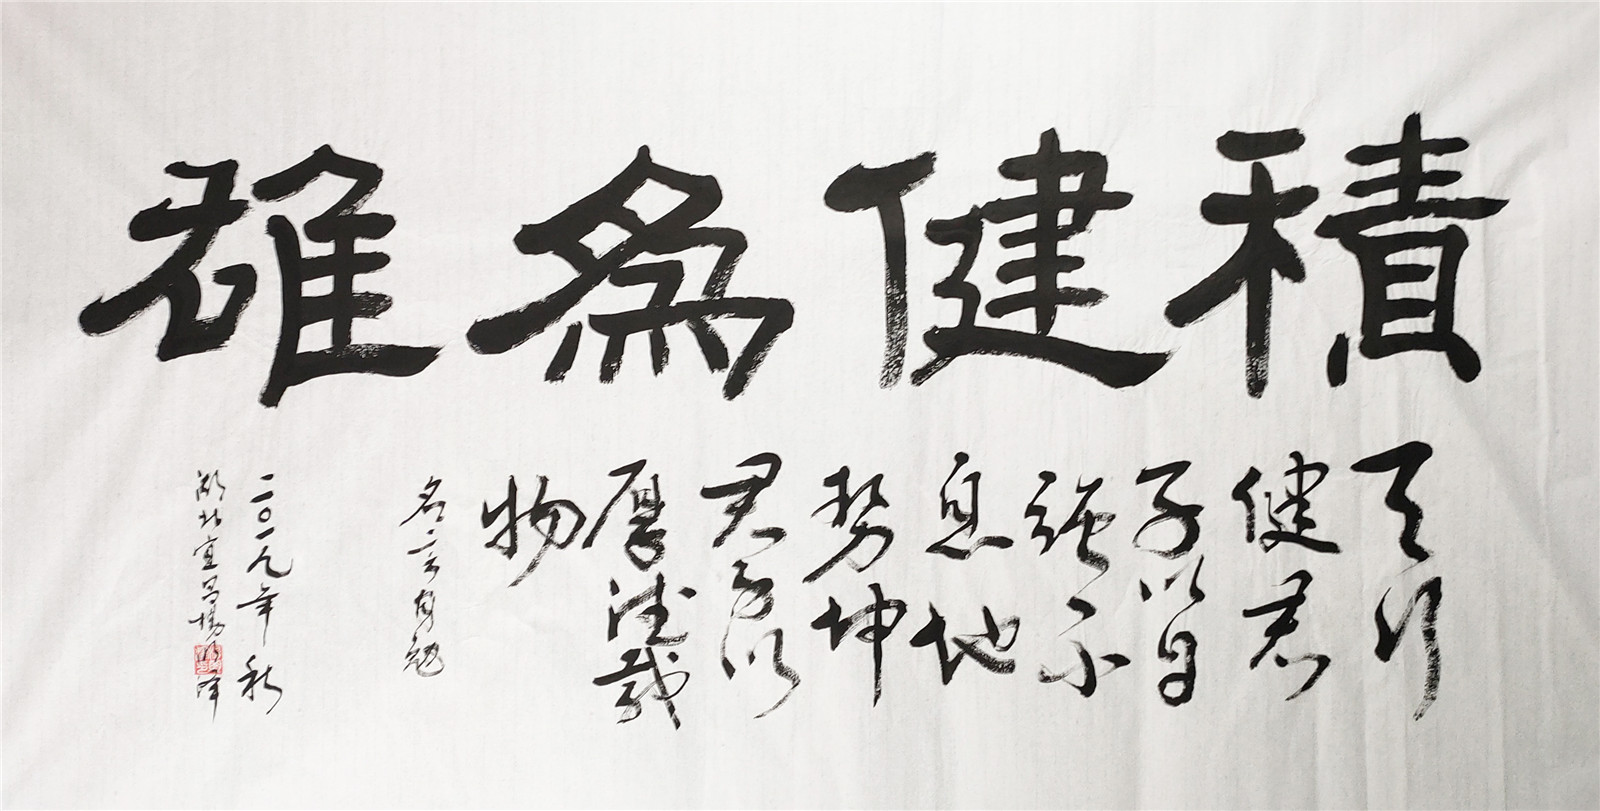 積健為雄
天行
健君
子以自
強不
息地
势坤
君子以
厚德載
物
名言自勉
二〇一九年秋
湖北宜昌楊